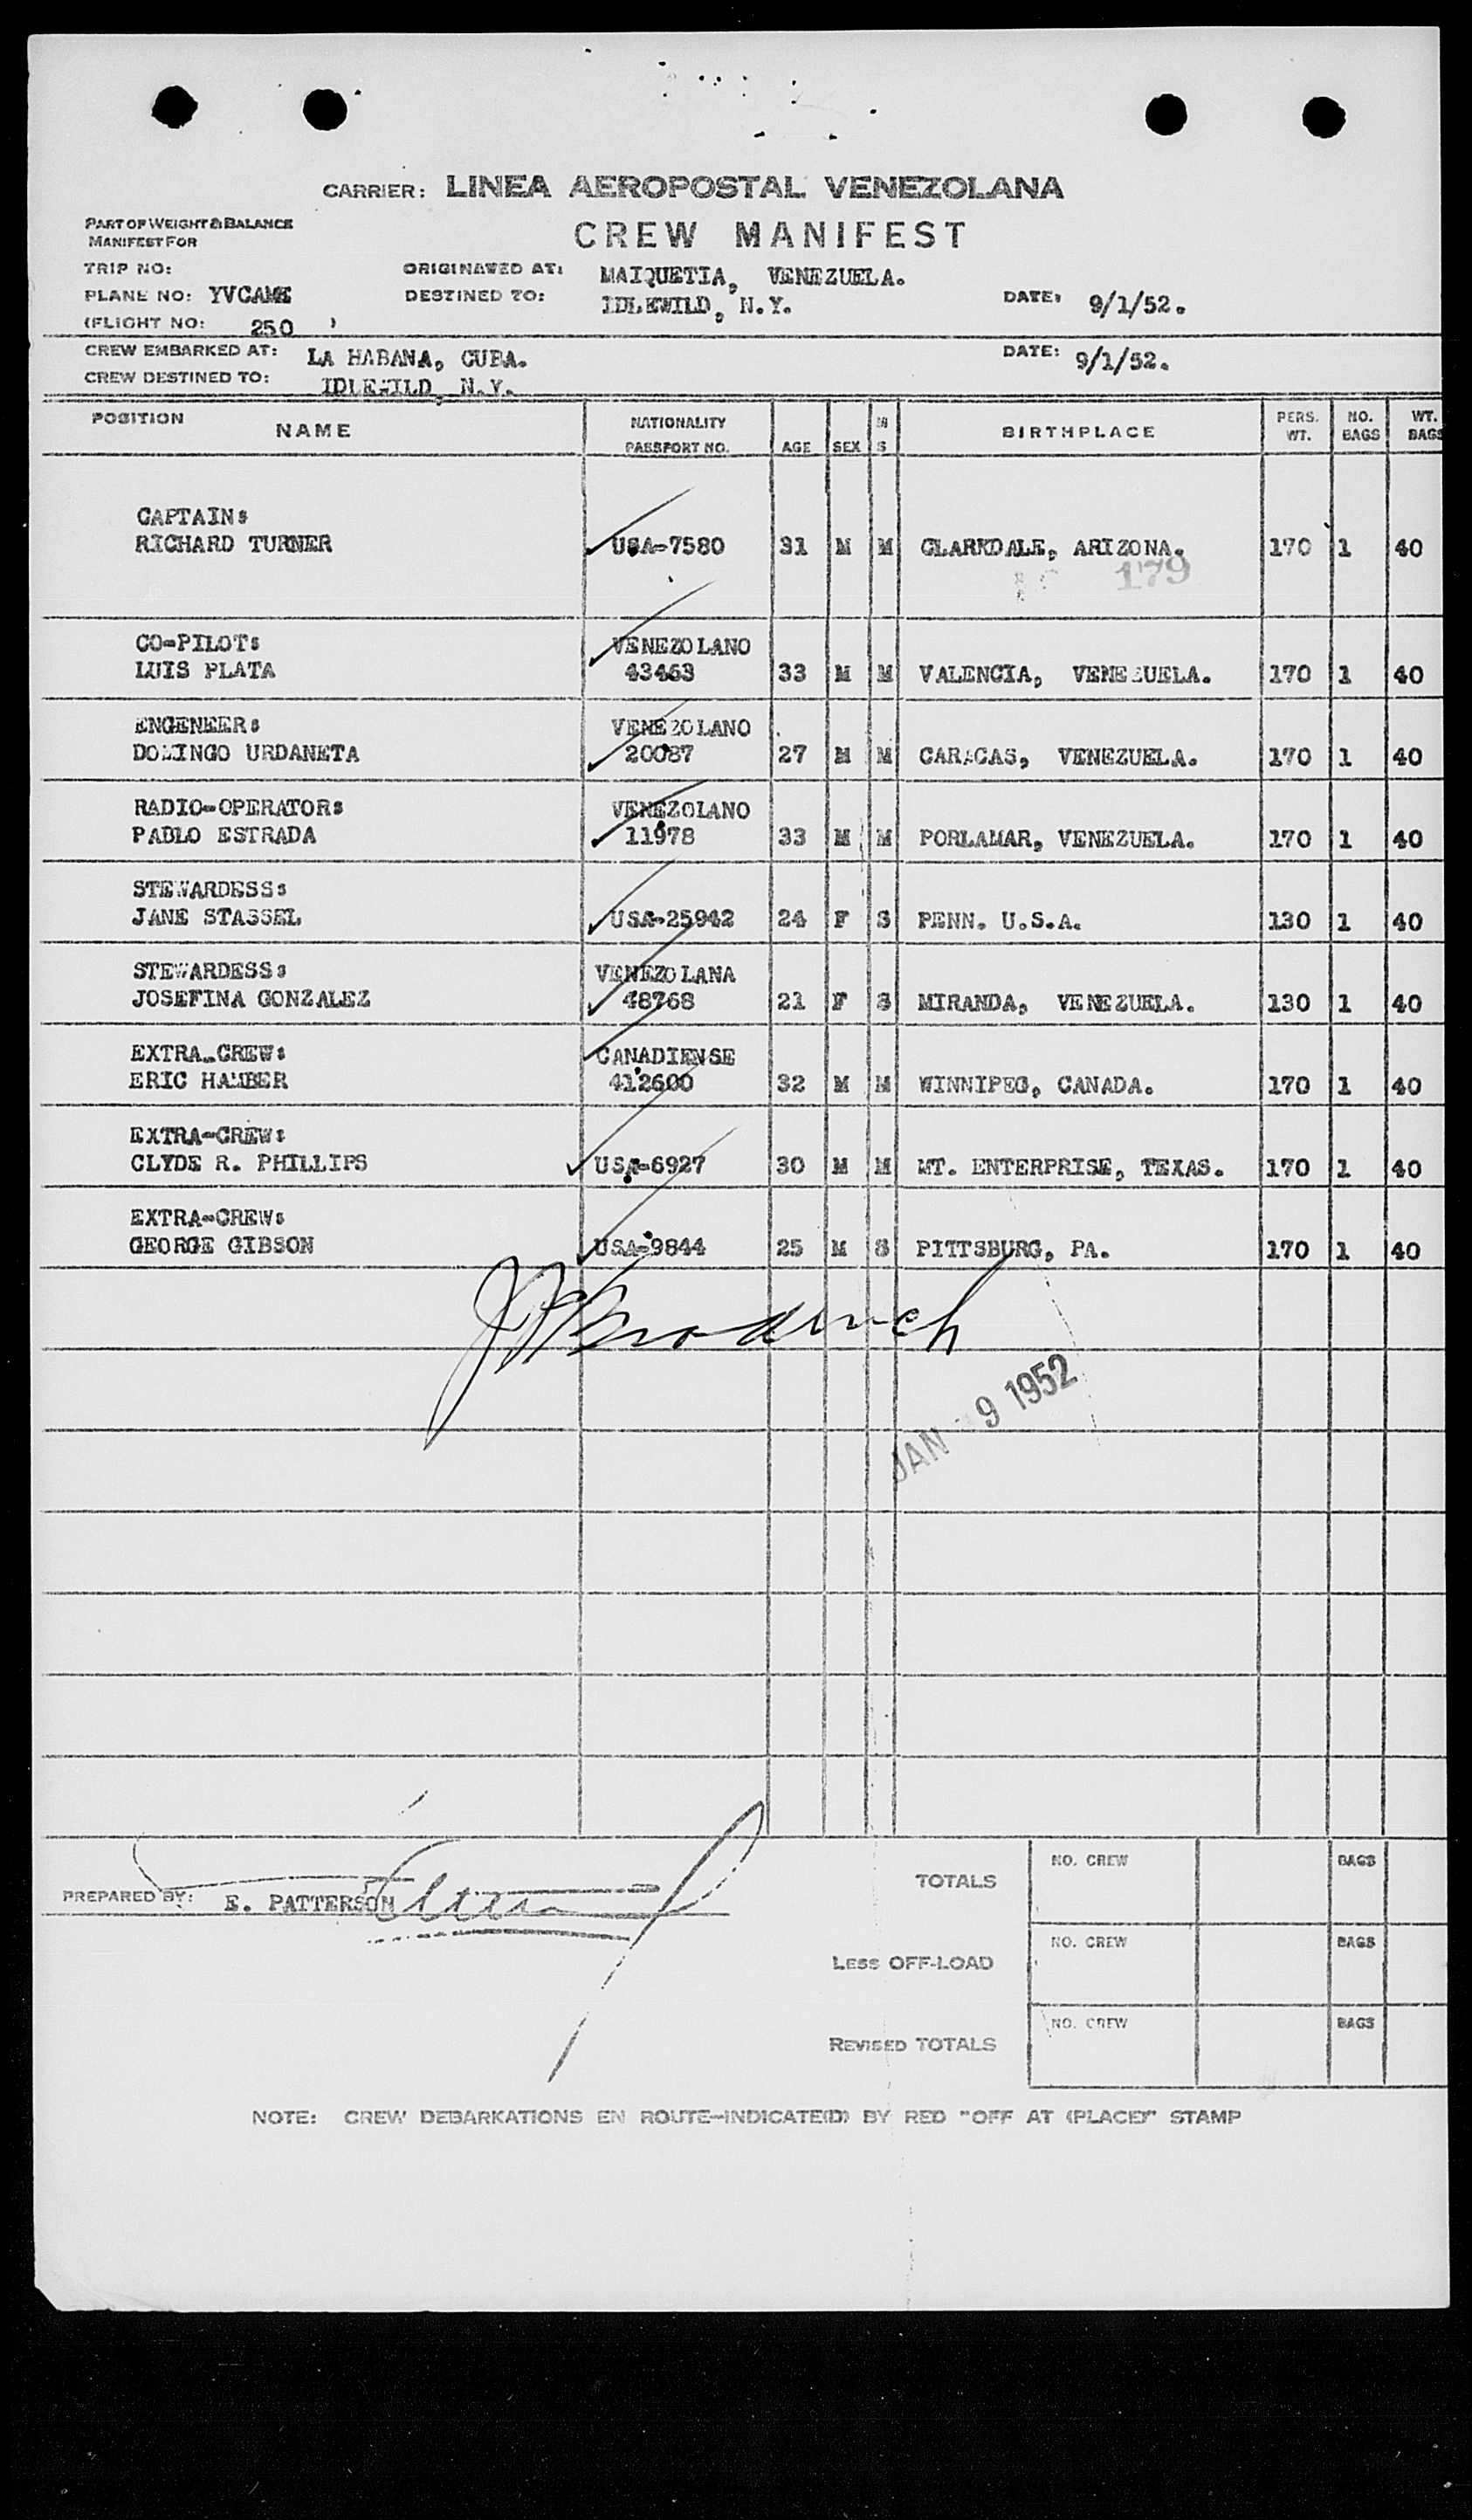 CARRIER: LINEA AEROPOSTAL VENEZOLANA
PART OF WEIGHT & BALANCE
MANIFEST FOR
CREW MANIFEST
TRIP NO:
ORIGINATED AT: MAIQUETIA, VENEZUELA.
PLANE NO: YVCAME
DESTINED TO: IDLEWILD, N.Y.
DATE: 9/1/52.
(FLIGHT NO: 250 )
CREW EMBARKED AT: LA HABANA, CUBA.
DATE: 9/1/52.
CREW DESTINED TO: IDLEWILD, N.Y.
POSITION NAME NATIONALITY PASSPORT NO. AGE SEX M S BIRTHPLACE PERS. WT. NO. BAGS WT. BAGS
CAPTAIN:
RICHARD TURNER USA-7580 31 M M CLARKDALE, ARIZONA. 170 1 40
179
CO-PILOT: VENEZOLANO
LUIS PLATA 43463 33 M M VALENCIA, VENEZUELA. 170 1 40
ENGENEER: VENEZOLANO
DOMINGO URDANETA 20087 27 M M CARACAS, VENEZUELA. 170 1 40
RADIO-OPERATOR: VENEZOLANO
PABLO ESTRADA 11978 33 M M PORLAMAR, VENEZUELA. 170 1 40
STEWARDESS:
JANE STASSEL USA-25942 24 F S PENN. U.S.A. 130 1 40
STEWARDESS: VENEZOLANA
JOSEFINA GONZALEZ 48768 21 F S MIRANDA, VENEZUELA. 130 1 40
EXTRA-CREW: CANADIENSE
ERIC HAMBER 412600 32 M M WINNIPEG, CANADA. 170 1 40
EXTRA-CREW:
CLYDE R. PHILLIPS USA-6927 30 M M MT. ENTERPRISE, TEXAS. 170 1 40
EXTRA-CREW:
GEORGE GIBSON USA-9844 25 M S PITTSBURG, PA. 170 1 40
JAN 9 1952
PREPARED BY: E. PATTERSON
TOTALS NO. CREW BAGS
LESS OFF-LOAD NO. CREW BAGS
REVISED TOTALS NO. CREW BAGS
NOTE: CREW DEBARKATIONS EN ROUTE-INDICATE(D) BY RED "OFF AT (PLACE)" STAMP